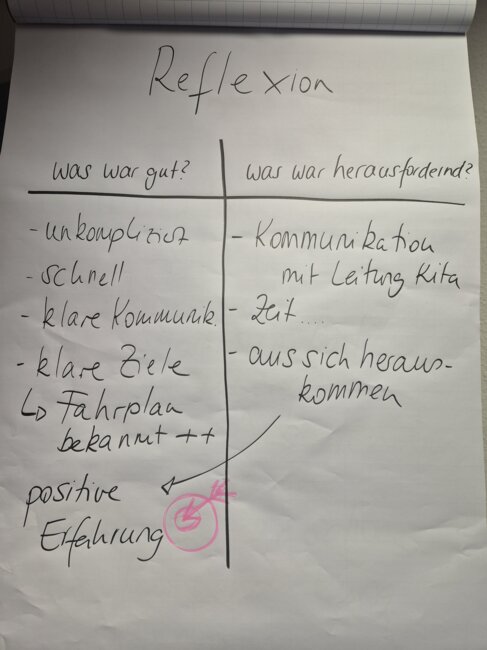 Reflexion
was war gut?
- unkompliziert
- schnell
- klare Kommunik.
- klare Ziele
↳ Fahrplan
bekannt ++
positive
Erfahrung
was war herausfordernd?
- Kommunikation
mit Leitung Kita
- Zeit....
- aus sich heraus-
kommen